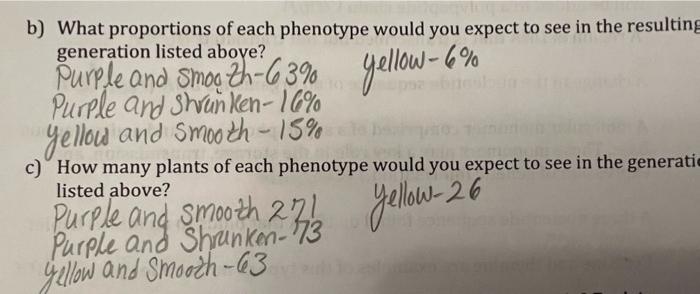 b) What proportions of each phenotype would you expect to see in the resulting
generation listed above?
Purple and smooth-63% yellow-6%
Purple and Shrunken-16%
yellow and smooth-15%
c) How many plants of each phenotype would you expect to see in the generatio
listed above?
Purple and smooth 271 yellow-26
Purple and Shrunken-73
yellow and smooth-63